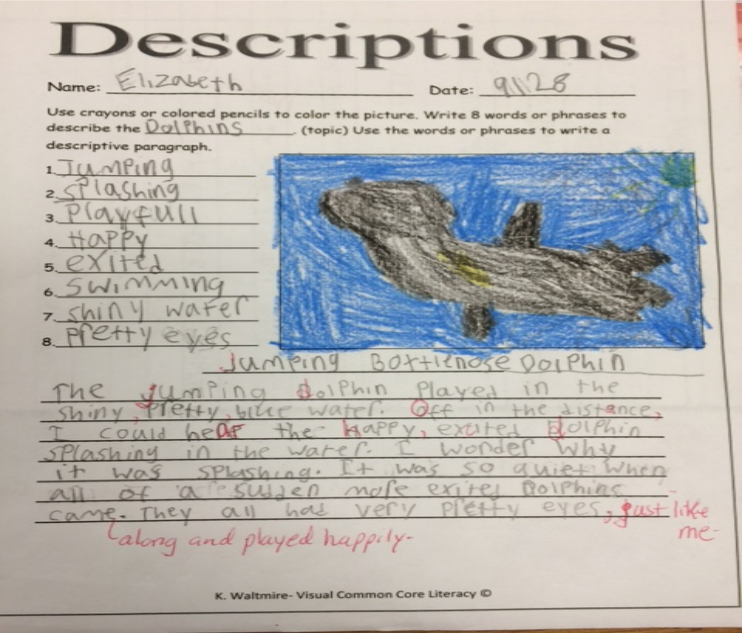 Descriptions
Name: Elizabeth Date: 9/128
Use crayons or colored pencils to color the picture. Write 8 words or phrases to
describe the Dolphins (topic) Use the words or phrases to write a
descriptive paragraph.
1. Jumping
2. splashing
3. Playfull
4. Happy
5. exited
6. swimming
7. shiny water
8. Pretty eyes
Jumping Bottlenose Dolphin
The jumping dolphin Played in the
shiny, Pretty, blue water. Off in the distance,
I could hear the happy, exited Dolphin
splashing in the water. I wonder why
it was splashing. It was so quiet when
all of a sudden more exited Dolphins
came. They all had very pretty eyes, just like
me.
along and played happily.
K. Waltmire- Visual Common Core Literacy ©